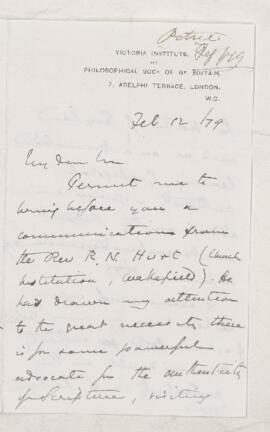 Petrie
VICTORIA INSTITUTE,
OR
PHILOSOPHICAL SOCY OF GT. BRITAIN,
7, ADELPHI TERRACE, LONDON,
W.C.
Feb 12/79
My dear Sir
Permit me to
bring before you a
communication from
the Rev R. N. Hurt (Church
Institution, Wakefield). He
has drawn my attention
to the great necessity there
is for some powerful
advocate for the authenticity
of Scripture, visiting